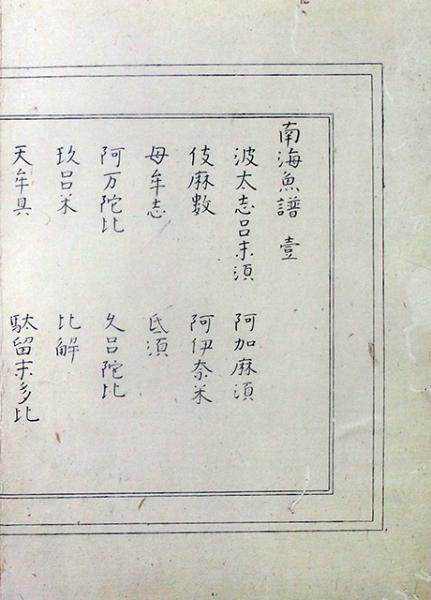 南海魚譜 壹
波太志呂末須 阿加麻須
伎麻數 阿伊奈米
母牟志 氐須
阿万陀比 久呂陀比
玖呂米 比解
天牟具 駄留末多比